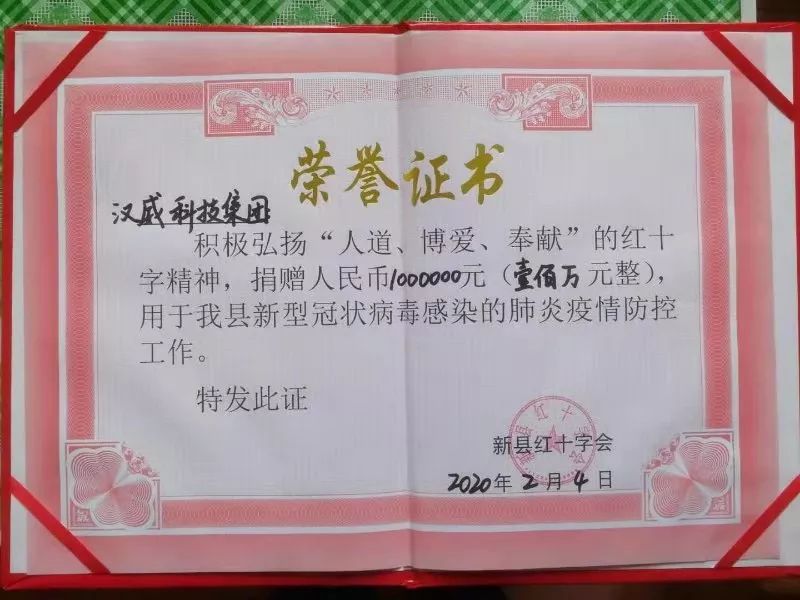 荣誉证书
汉威科技集团
积极弘扬“人道、博爱、奉献”的红十
字精神，捐赠人民币1000000元（壹佰万元整），
用于我县新型冠状病毒感染的肺炎疫情防控
工作。
特发此证
新县红十字会
新县红十字会
2020年2月4日